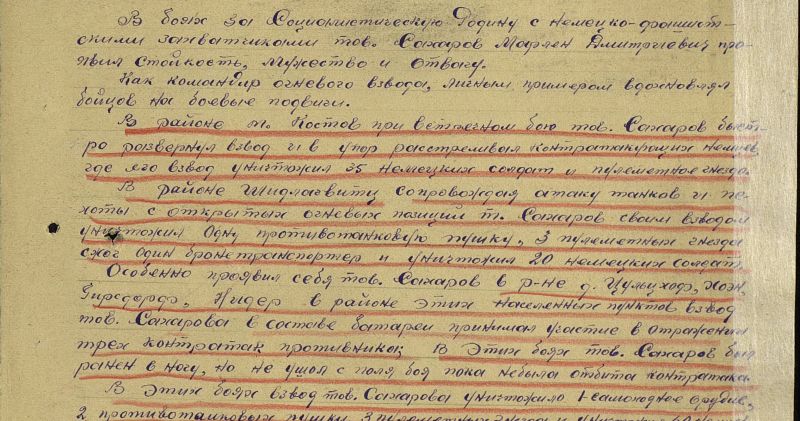 В боях за Социалистическую Родину с немецко-фашист-
скими захватчиками тов. Сахаров Марлен Дмитриевич про-
явил стойкость, мужество и отвагу.
Как командир огневого взвода, личным примером вдохновлял
бойцов на боевые подвиги.
В районе м. Костов при встречном бою тов. Сахаров быст-
ро развернул взвод и в упор расстреливал контратакующих немцев,
где его взвод уничтожил 35 немецких солдат и пулеметное гнездо.
В районе Шидлаевитц сопровождая атаку танков и пе-
хоты с открытых огневых позиций т. Сахаров своим взводом
уничтожил одну противотанковую пушку, 3 пулеметных гнезда
сжог один бронетранспортер и уничтожил 20 немецких солдат.
Особенно проявил себя тов. Сахаров в р-не д. Цульцхоф, Хоэн,
Гирсдорф, Нидер в районе этих населенных пунктов взвод
тов. Сахарова в составе батареи принимал участие в отражении
трех контратак противника; В этих боях тов. Сахаров был
ранен в ногу, но не ушол с поля боя пока небыла отбита контратака.
В этих боях взвод тов. Сахарова уничтожило 1 самоходное орудие,
2 противотанковых пушки, 3 пулеметных гнезда и уничтожил